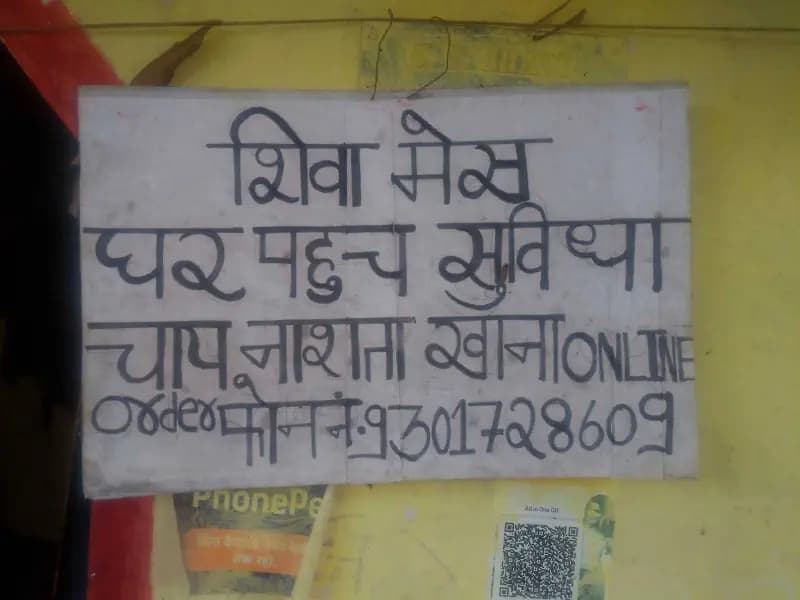 शिवा मेस
घर पहुच सुविधा
चाय नाशता खाना ONLINE
order फोन नं. 9301728609
PhonePe